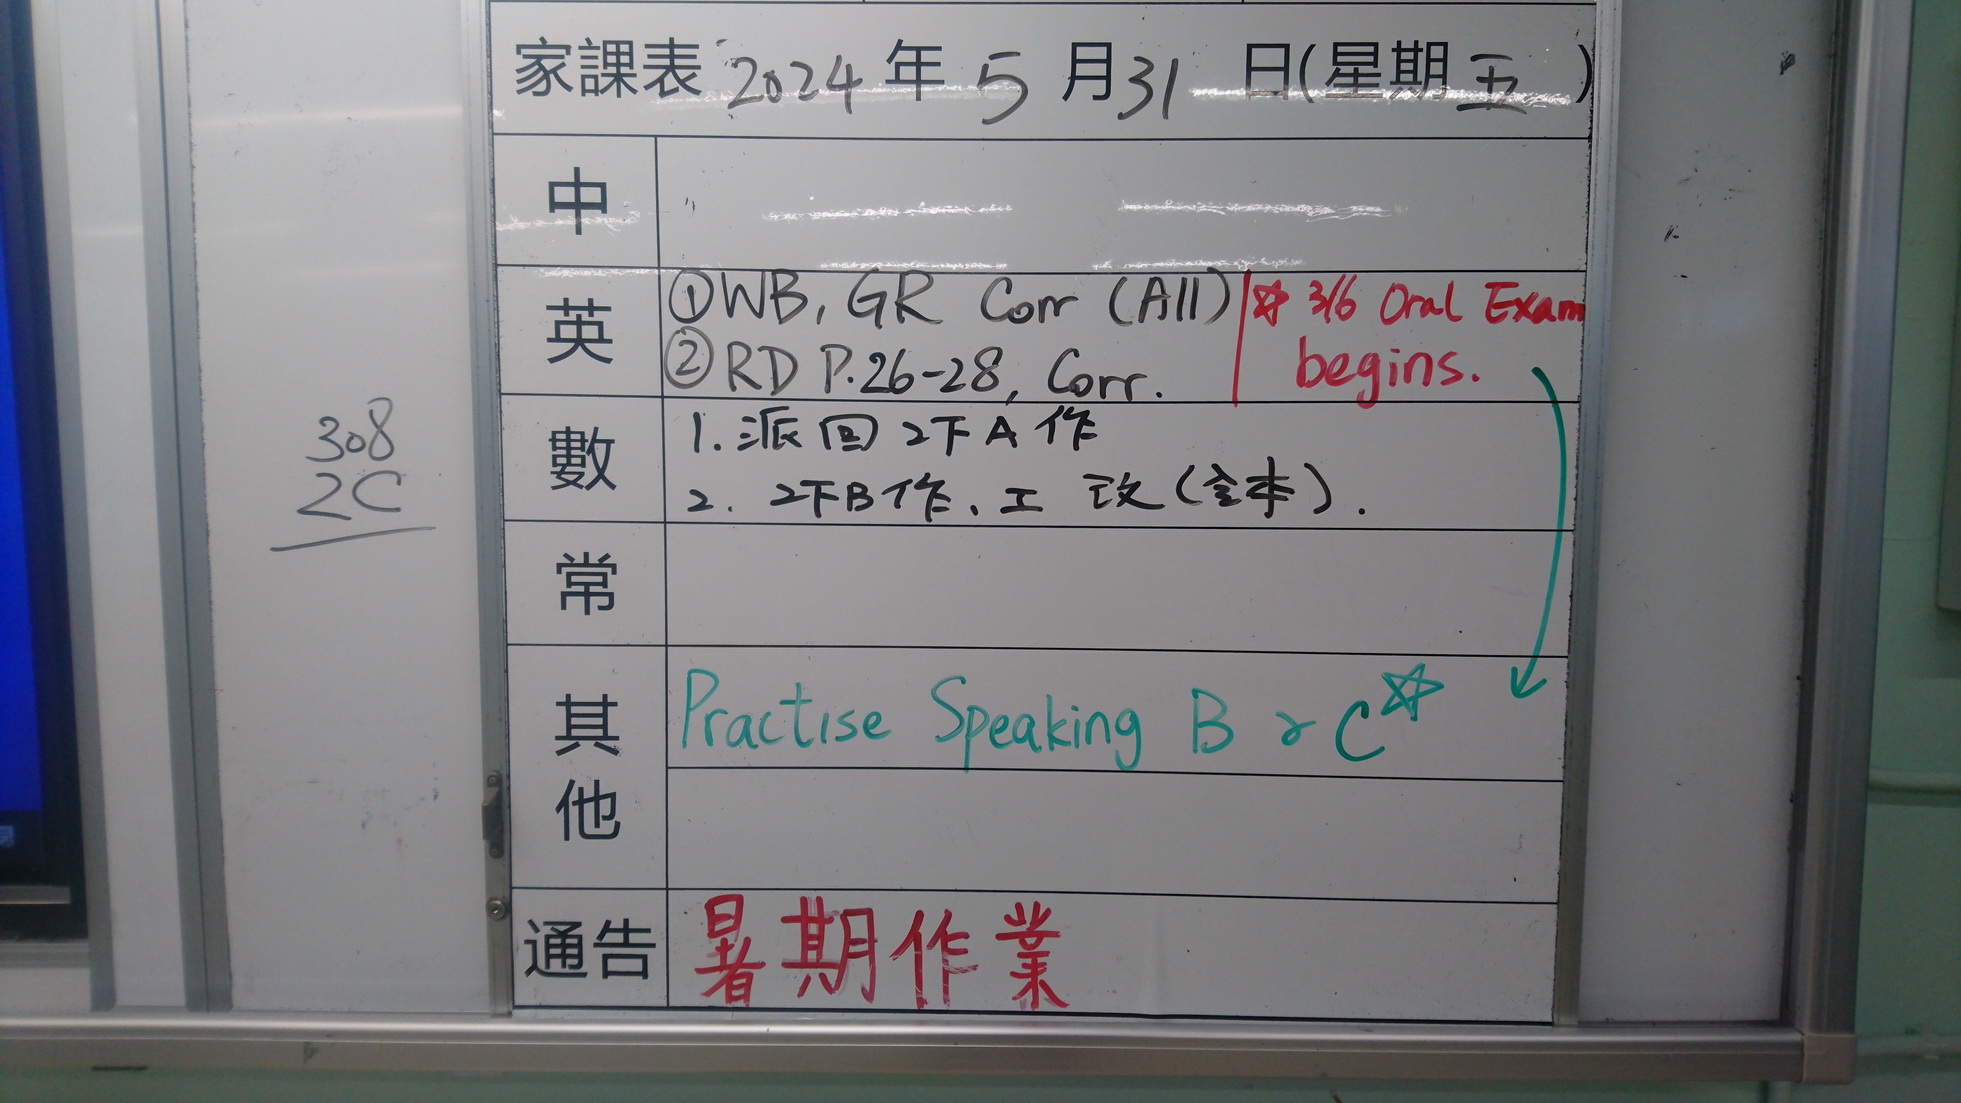 家課表 2024 年 5 月 31 日(星期 五 )
中
英
①WB, GR Corr (All)
②RD P.26-28, Corr.
☆ 3/6 Oral Exam
begins.
308
2C
數
1. 派回 2下A 作
2. 2下B作、工 改(全本).
常
其他
Practise Speaking B & C☆
通告
暑期作業